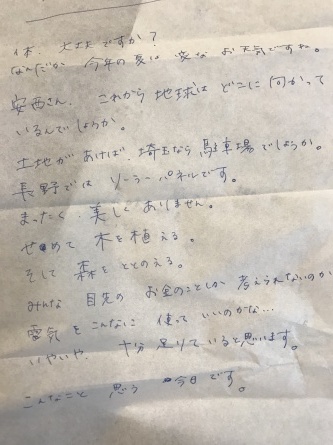 体、大丈夫ですか？
なんだか 今年の夏は 変な お天気ですね。
安西さん、これから 地球は どこに 向かって
いるんでしょうか。
土地があけば、埼玉なら 駐車場でしょうか。
長野では ソーラーパネルです。
まったく 美しく ありません。
せめて 木を植える。
そして 森を ととのえる。
みんな 目先の お金のことしか 考えられないのか
電気を こんなに 使って いいのかな…
いやいや、十分 足りていると思います。
こんなこと 思う 今日です。